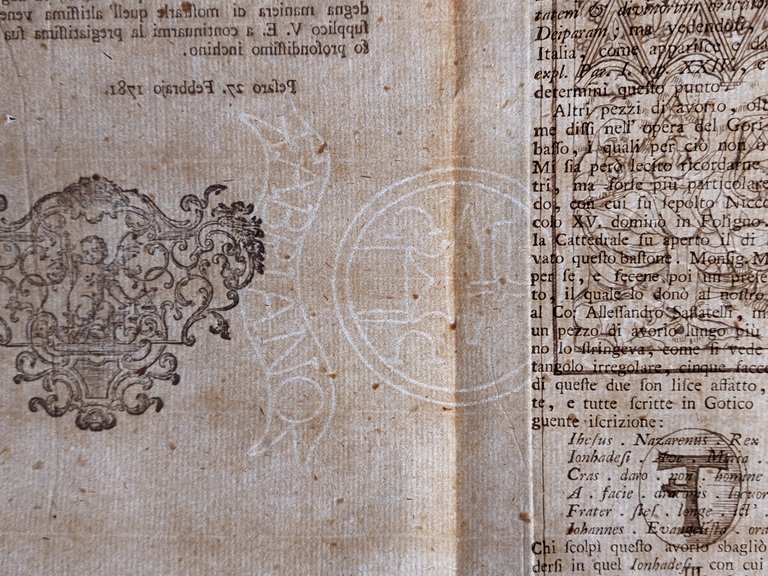 degna maniera di moſtrarle quell'altiſſima vene
ſupplico V. E. a continuarmi la pregiatiſſima ſua
fo profondiſſimo inchino.
Peſaro 27. Febbrajo 1781.
tatem & divinorum
Deiparam; ma vedendoſi,
Italia, come appariſce e da
expl. Par. I. cap. XXIII., e
determini queſto punto.
Altri pezzi di avorio, olt
me diſſi nell' opera del Gori
baſſo, i quali per ciò non o
Mi ſia però lecito ricordarne
tri, ma forſe più particolare
do, con cui fu ſepolto Nicco
colo XV. dominò in Foligno
la Cattedrale fu aperto il dì
vato queſto baſtone. Monſig. M
per ſe, e fecene poi un preſe
to, il quale lo donò al noſtro
al Co. Alleſſandro Saſſatelli, m
un pezzo di avorio lungo più
no lo ſtringeva; come ſi vede
tangolo irregolare, cinque facce
di queſte due ſon liſce affatto,
te, e tutte ſcritte in Gotico
guente iſcrizione:
Iheſus . Nazarenus . Rex
Ionhadeſi . Ave . Maria .
Cras . daro . non . homine
A . facie . draconis . locuor
Frater . ſteſ . longe . iſt'
Iohannes . Evangeliſta . ora
Chi ſcolpì queſto avorio sbagliò
derſi in quel Ionhadeſi, con cui